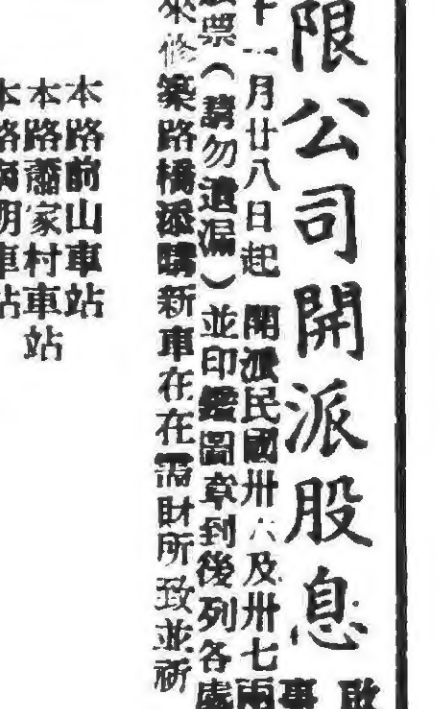 限公司開派股息
啟
事
十一月廿八日起 開派民國卅六及卅七兩
股票（請勿遺漏）並印鑑圖章到後列各處
來修築路橋添購新車在在需財所致並祈
本路前山車站
本路蕭家村車站
本路 明車站